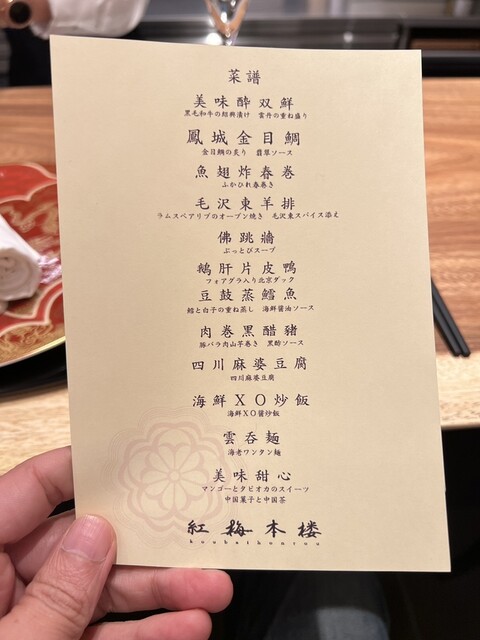 菜譜
美味酔双鮮
黒毛和牛の紹興漬け 雲丹の重ね盛り
鳳城金目鯛
金目鯛の炙り 翡翠ソース
魚翅炸春巻
ふかひれ春巻き
毛沢東羊排
ラムスペアリブのオーブン焼き 毛沢東スパイス添え
佛跳牆
ぶっとびスープ
鵝肝片皮鴨
フォアグラ入り北京ダック
豆鼓蒸鱈魚
鱈と白子の重ね蒸し 海鮮醤油ソース
肉巻黒醋豬
豚バラ肉山芋巻き 黒酢ソース
四川麻婆豆腐
四川麻婆豆腐
海鮮XO炒飯
海鮮XO醤炒飯
雲呑麺
海老ワンタン麺
美味甜心
マンゴーとタピオカのスイーツ
中国菓子と中国茶
紅梅本楼
koubaihonrou